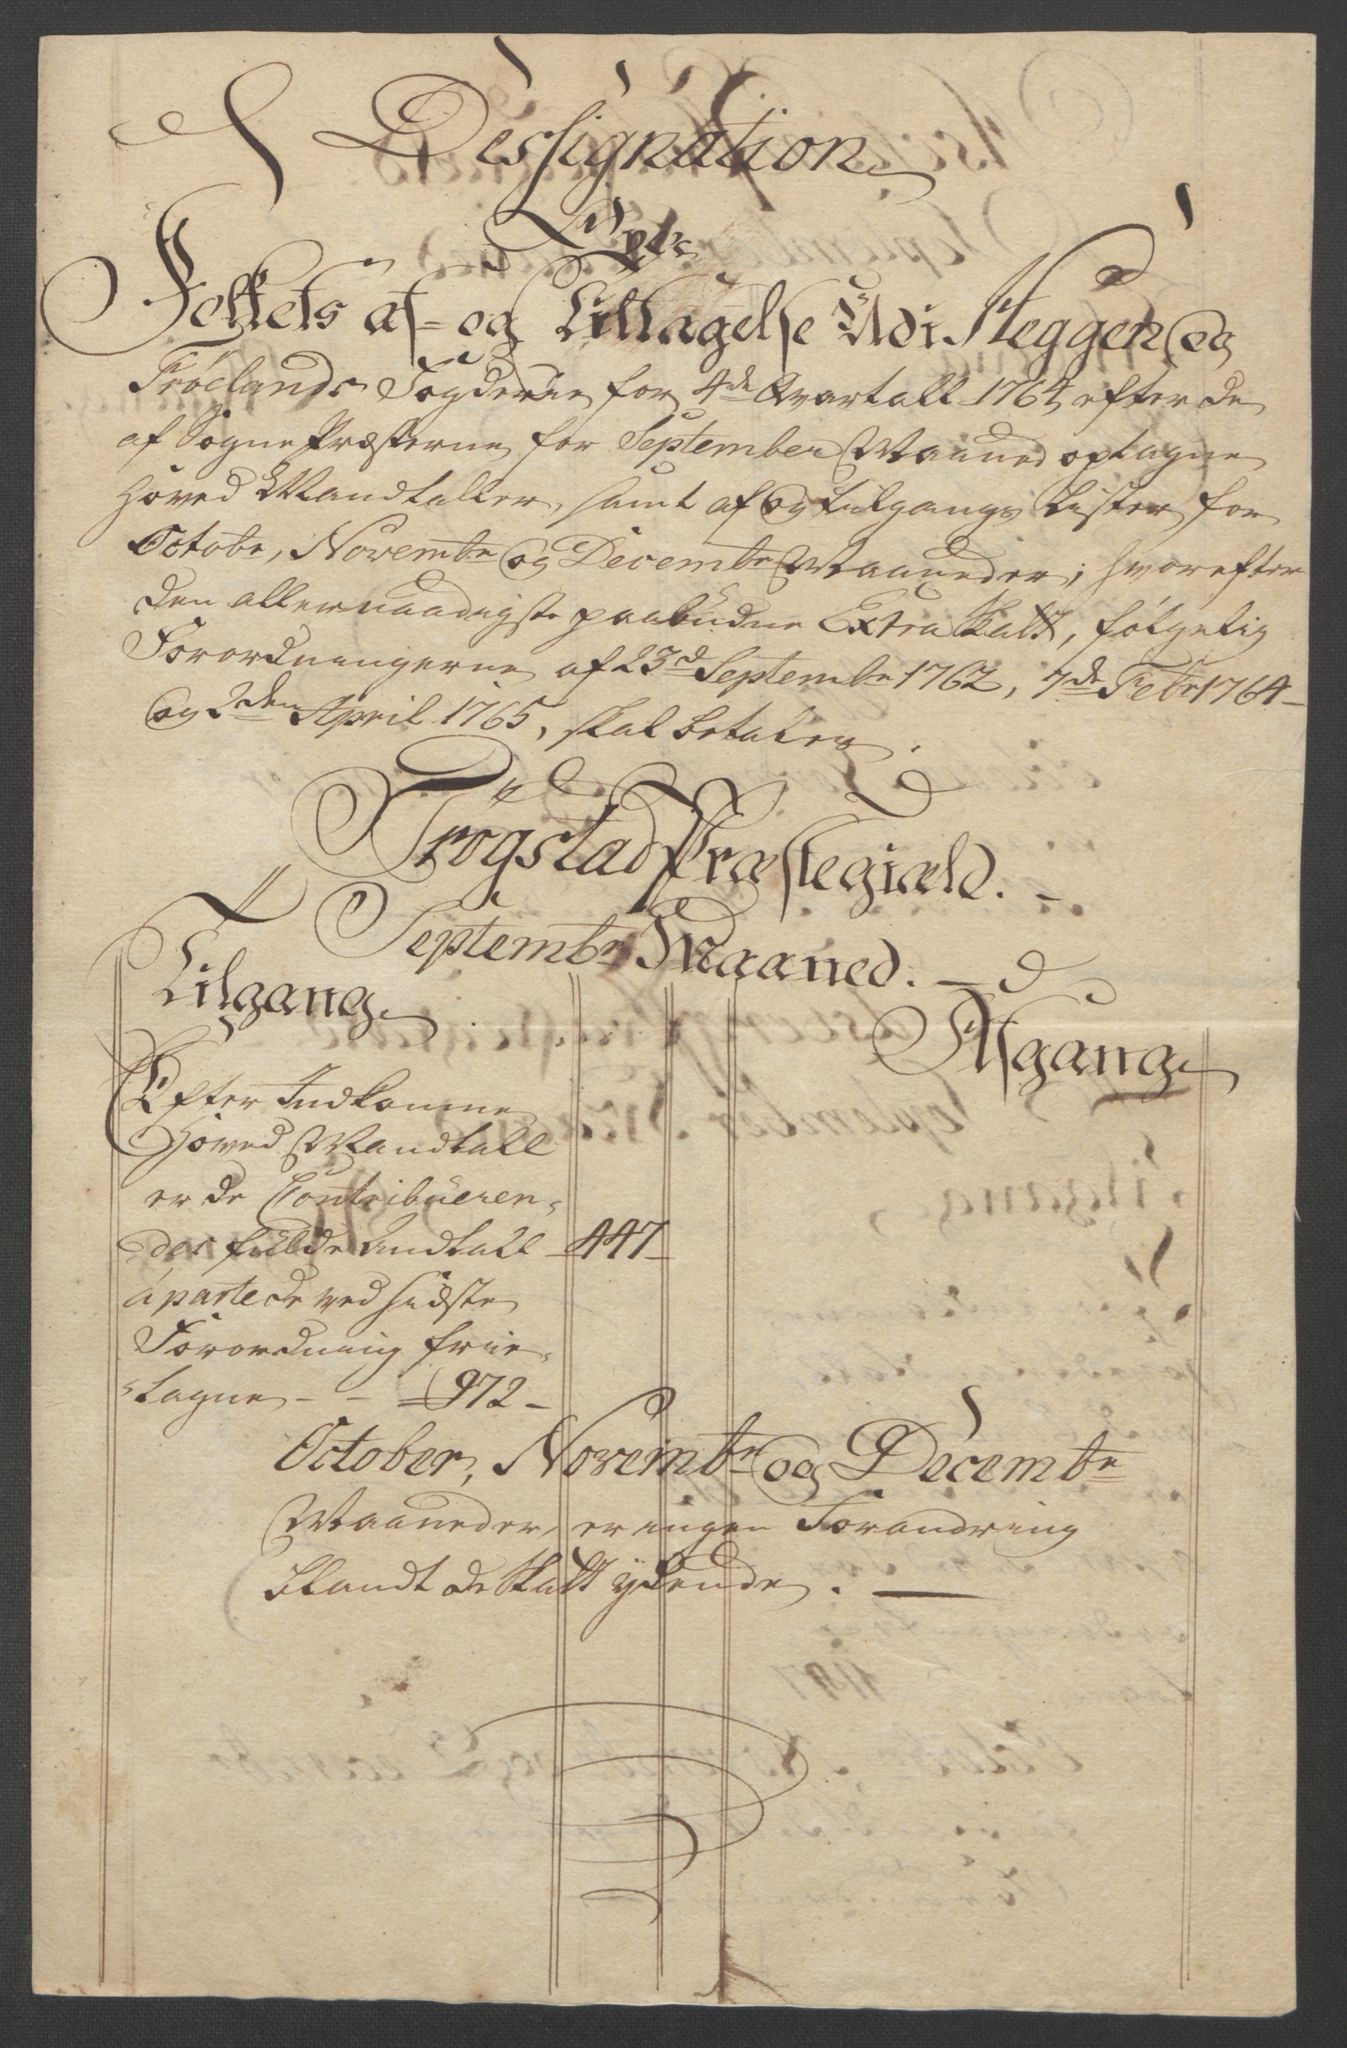 Dessignation
Over
Folkets af- og Tilltagelse Udi Heggen og
Frølands Fogderie for 4de Qvartall 1764 efter de
af Sogne Præsterne for September Maaned optagne
Hoved Mandtaller, samt af og tilgangs Lister for
Octobr, Novembr og Decembr Maaneder; hvorefter
den allernaadigste paabudne Extra Skatt, følgelig
Forordningerne af 23d Septembr 1762, 7de Febr 1764
og 2den April 1765, skal betales.
Trøgstad Præstegield.
Septembr Maaned.
Tilgang
Afgang
Efter Indkomne
Hoved Mandtall
er de Contribueren-
des fulde Andtall - 447 -
a parte de ved sidste
Forordning frie-
tagne - - 972 -
October, Novembr og Decembr
Maaneder, er ingen Forandring
blandt de Skatt ydende.